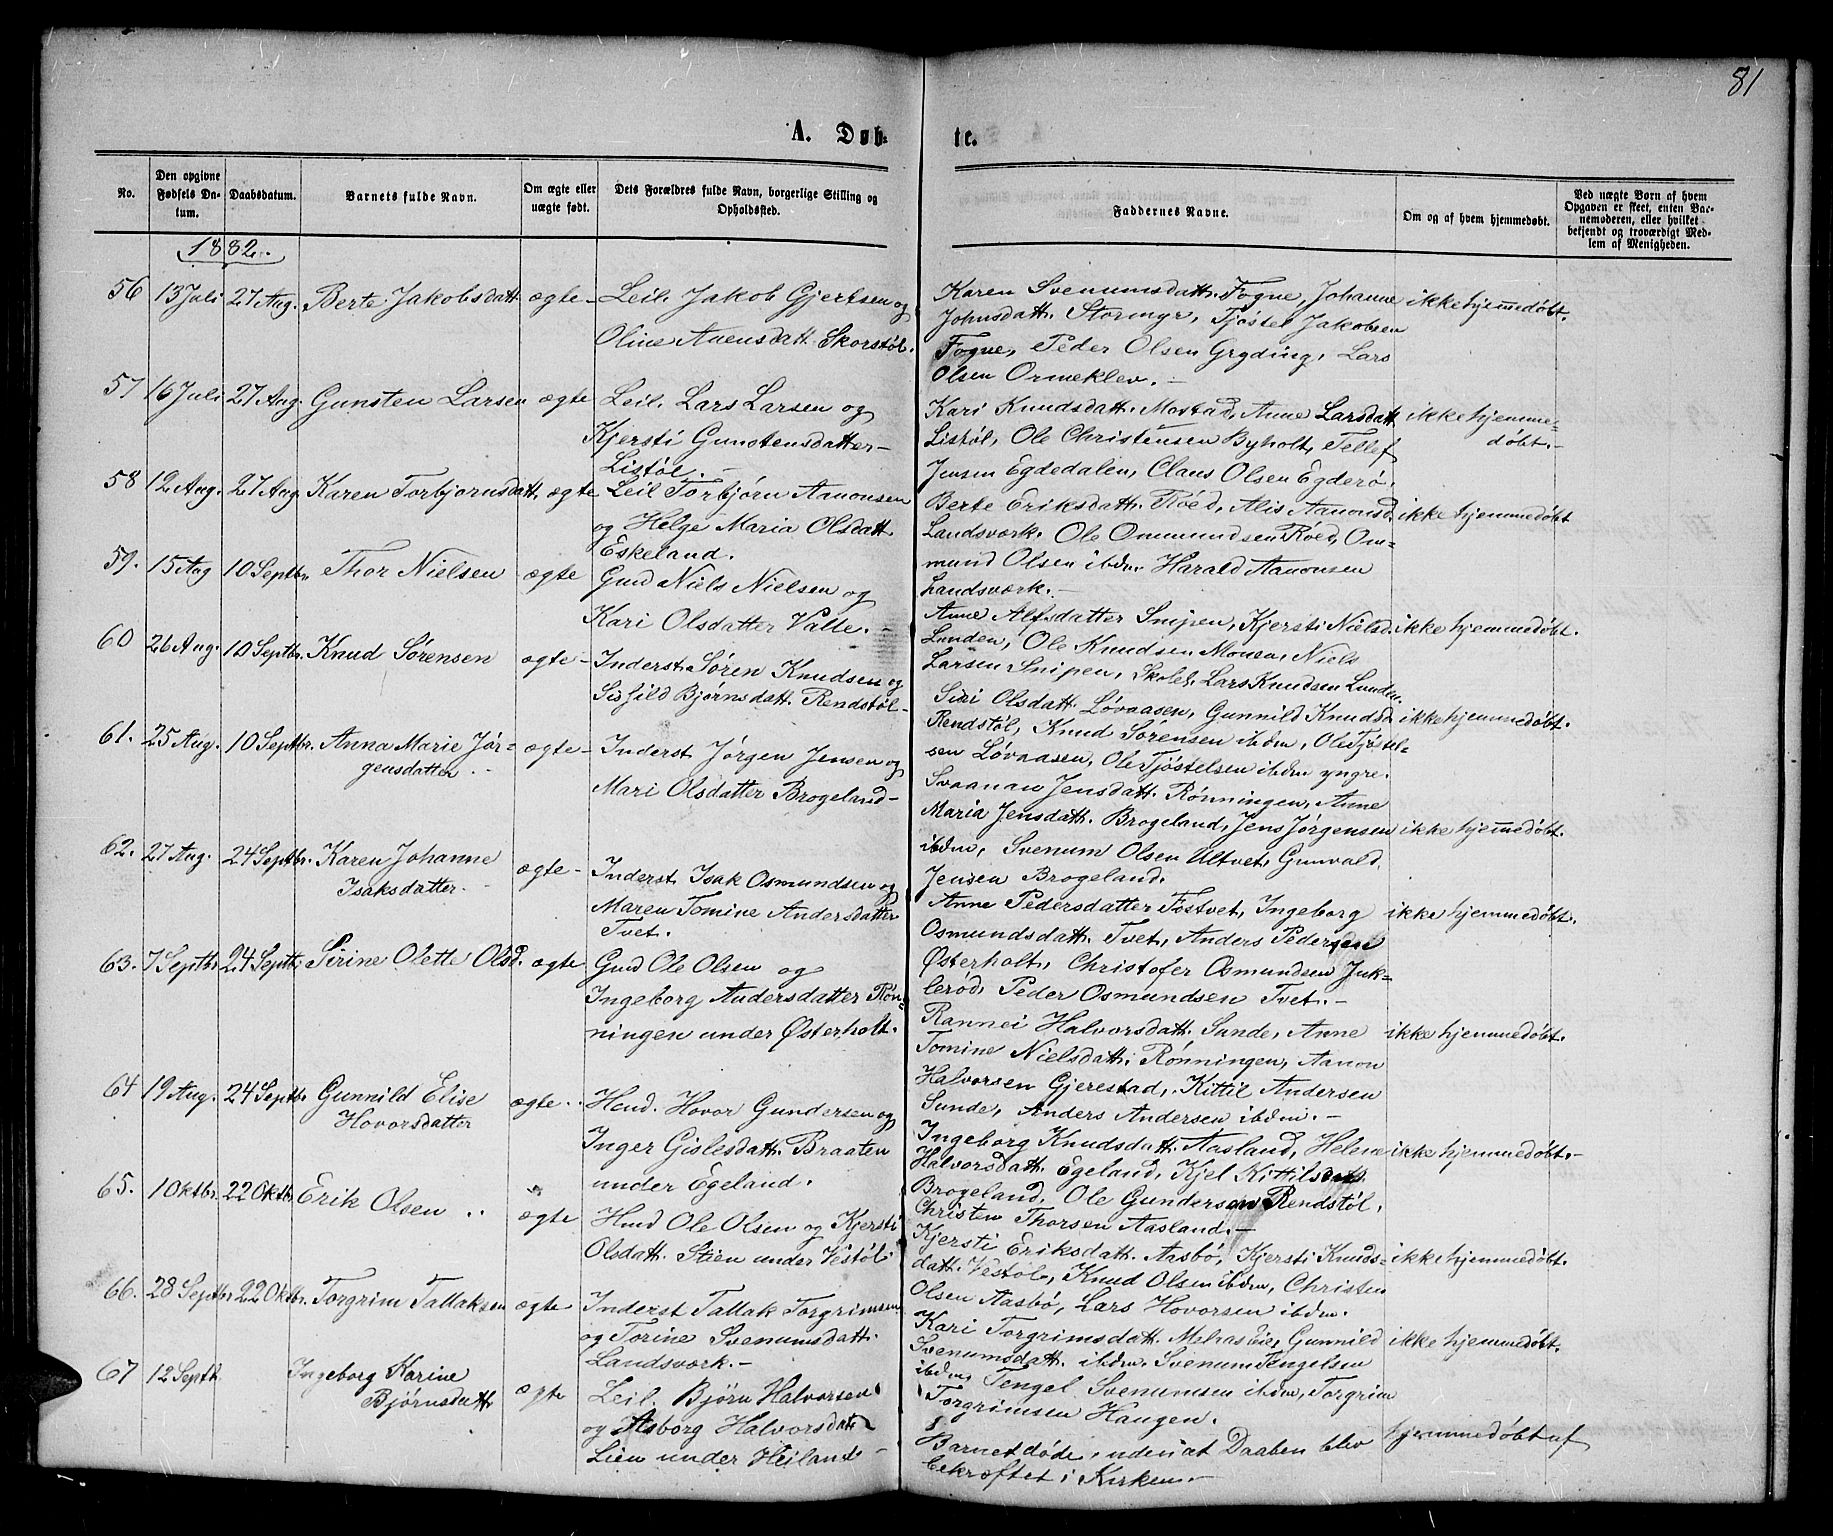 81
A. Døb-
te.
No.
Den opgivne Fødsels Datum.
Daabsdatum.
Barnets fulde Navn.
Om ægte eller uægte født.
Dets Forældres fulde Navn, borgerlige Stilling og Opholdssted.
Faddernes Navne.
Om og af hvem hjemmedøbt.
Ved uægte Børn af hvem Opgaven er skeet, enten Barnemoderen, eller hvilket bekjendt og troværdigt Medlem af Menigheden.
1882.
56 13 Juli 27 Aug. Berte Jakobsdatt. ægte - Leil. Jakob Gjertsen og
Oline Aaensdatt. Skorstøl.
Karen Svenumsdatt. Fogne, Johanne ikke hjemmedøbt.
Johnsdatt. Stormyr, Tjøstel Jakobsen
Fogne, Peder Olsen Gryding, Lars
Olsen Ormeklev. -
57 16 Juli 27 Aug. Gunsten Larsen ægte Leil. Lars Larsen og
Kjersti Gunstensdatter -
Listøl. -
Kari Knudsdatt. Mostad, Anne Larsdatt. ikke hjemme-
Listøl, Ole Christensen Byholt, Tellef døbt. -
Jensen Egdedalen, Claus Olsen Egderø.
58 12 Aug. 27 Aug. Karen Torbjørnsdatt. ægte Leil Torbjørn Aanonsen
og Helge Maria Olsdatt.
Eskeland.
Berte Eriksdatt. Röed, Alis Aanonsd. ikke hjemmedøbt
Landsværk. Ole Ommundsen Röed, Om-
mund Olsen ibdm. Harald Aanonsen
Landsværk. -
59. 15 Aug 10 Septbr. Thor Nielsen ægte Gmd Niels Nielsen og
Kari Olsdatter Valle. -
Anne Alfsdatter Snipen, Kjersti Nielsd. ikke hjemmedøbt.
Lunden, Ole Knudsen Monen, Niels
Larsen Snipen, Skolel. Lars Knudsen Lunden.
60 26 Aug. 10 Septbr. Knud Sørensen ægte - Inderst. Søren Knudsen og
Sigfild Bjørnsdatt. Rendstøl -
Siri Olsdatt. Løvaasen, Gunnild Knudsd. ikke hjemmedøbt.
Rendstøl, Knud Sørensen ibdm, Ole Tjøstel-
sen Løvaasen, Ole Tjøstelsen ibdm yngre.
61. 25 Aug. 10 Septbr. Anna Marie Jør- ægte - Inderst Jørgen Jensen og
gensdatter. Mari Olsdatter Brogeland -
Svaanau Jensdatt. Rønningen, Anne
Maria Jensdatt. Brogeland, Jens Jørgensen ikke hjemmedøbt.
ibdm, Svenum Olsen Ultvet, Gunvald
Jensen Brogeland.
62. 27 Aug. 24 Septbr. Karen Johanne ægte - Inderst. Isak Osmundsen og
Isaksdatter. Maren Tomine Andersdatter
Tvet.
Anne Pedersdatter Fostvet, Ingeborg ikke hjemmedøbt.
Osmundsdatt. Tvet, Anders Pedersen
Østerholt, Christofer Osmundsen Juk-
lerød, Peder Osmundsen Tvet. -
63. 7 Septbr. 24 Septbr. Sirine Olette Olsd. ægte Gmd Ole Olsen og
Ingeborg Andersdatter Røn-
ningen under Østerholt.
Rannei Halvorsdatt. Sunde, Anne ikke hjemmedøbt.
Tomine Nielsdatt. Rønningen, Aanon
Halvorsen Gjerestad, Kittil Andersen
Sunde, Anders Andersen ibdm. -
64 19 Aug. 24 Septbr. Gunnild Elise ægte. Hmd. Hovor Gundersen og
Hovorsdatter Inger Gislesdatt. Braaten
under Egeland.
Ingeborg Knudsdatt. Aasland, Helene ikke hjemmedøbt. -
Halvorsdatt. Egeland, Kjel Kittilsen
Brogeland, Ole Gundersen Rendstøl,
Christen Thorsen Aasland. -
65. 1 Oktbr. 22 Oktbr. Erik Olsen ægte Hmd Ole Olsen og Kjersti
Olsdatt. Stien under Vestøl
Kjersti Eriksdatt. Aasbø, Kjersti Knuds- ikke hjemmedøbt.
datt. Vestøl, Knud Olsen ibdm, Christen
Olsen Aasbø, Lars Hovorsen ibdm.
66. 28 Septbr 22 Oktbr. Torgrim Tallaksen ægte Inderst Tallak Torgrimsen
og Torine Svenumsdatt.
Landsværk. -
Kari Torgrimsdatt. Melraseie, Gunnild ikke hjemmedøbt.
Svenumsdatt. ibdm. Svenum Tengelsen
ibdm, Tengel Svenumsen ibdm, Torgrim
Torgrimsen Haugen.
67 12 Septb. Ingeborg Karine ægte Leil. Bjørn Halvorsen
Bjørnsdatt. og Asborg Halvorsdatt
Lien under Heiland -
Barnet døde, uden at Daaben blev hjemmedøbt af
bekræftet i Kirken. -